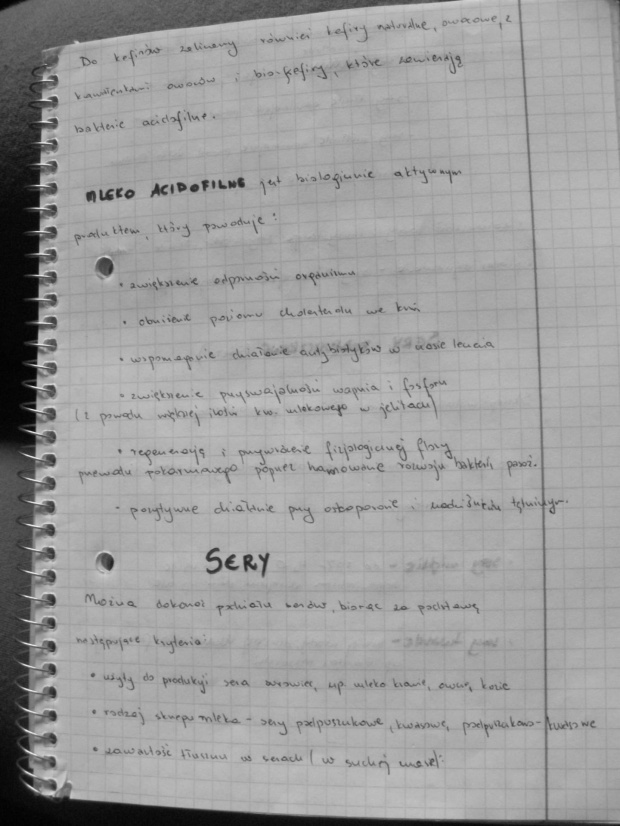 Do kefirów zaliczamy również kefiry naturalne, owocowe, z
kawałkami owoców i bio-kefiry, które zawierają
bakterie acidofilne.
MLEKO ACIDOFILNE jest biologicznie aktywnym
produktem, który powoduje:
• zwiększenie odporności organizmu
• obniżenie poziomu cholesterolu we krwi
• wspomaganie działanie antybiotyków w czasie leczenia
• zwiększenie przyswajalności wapnia i fosforu
(z powodu większej ilości kw. mlekowego w jelitach)
• regenerują i przywrócenie fizjologicznej flory
przewodu pokarmowego poprzez hamowanie rozwoju bakterii pasoż.
• pozytywne działanie przy osteoporozie i nadciśnieniu tętniczym.
SERY
Można dokonać podziału serów, biorąc za podstawę
następujące kryteria:
• użyty do produkcji sera surowiec, np. mleko krowie, owcze, kozie
• rodzaj skrzepu mleka - sery podpuszczkowe, kwasowe, podpuszczkowo-kwasowe
• zawartość tłuszczu w serach (w suchej masie):